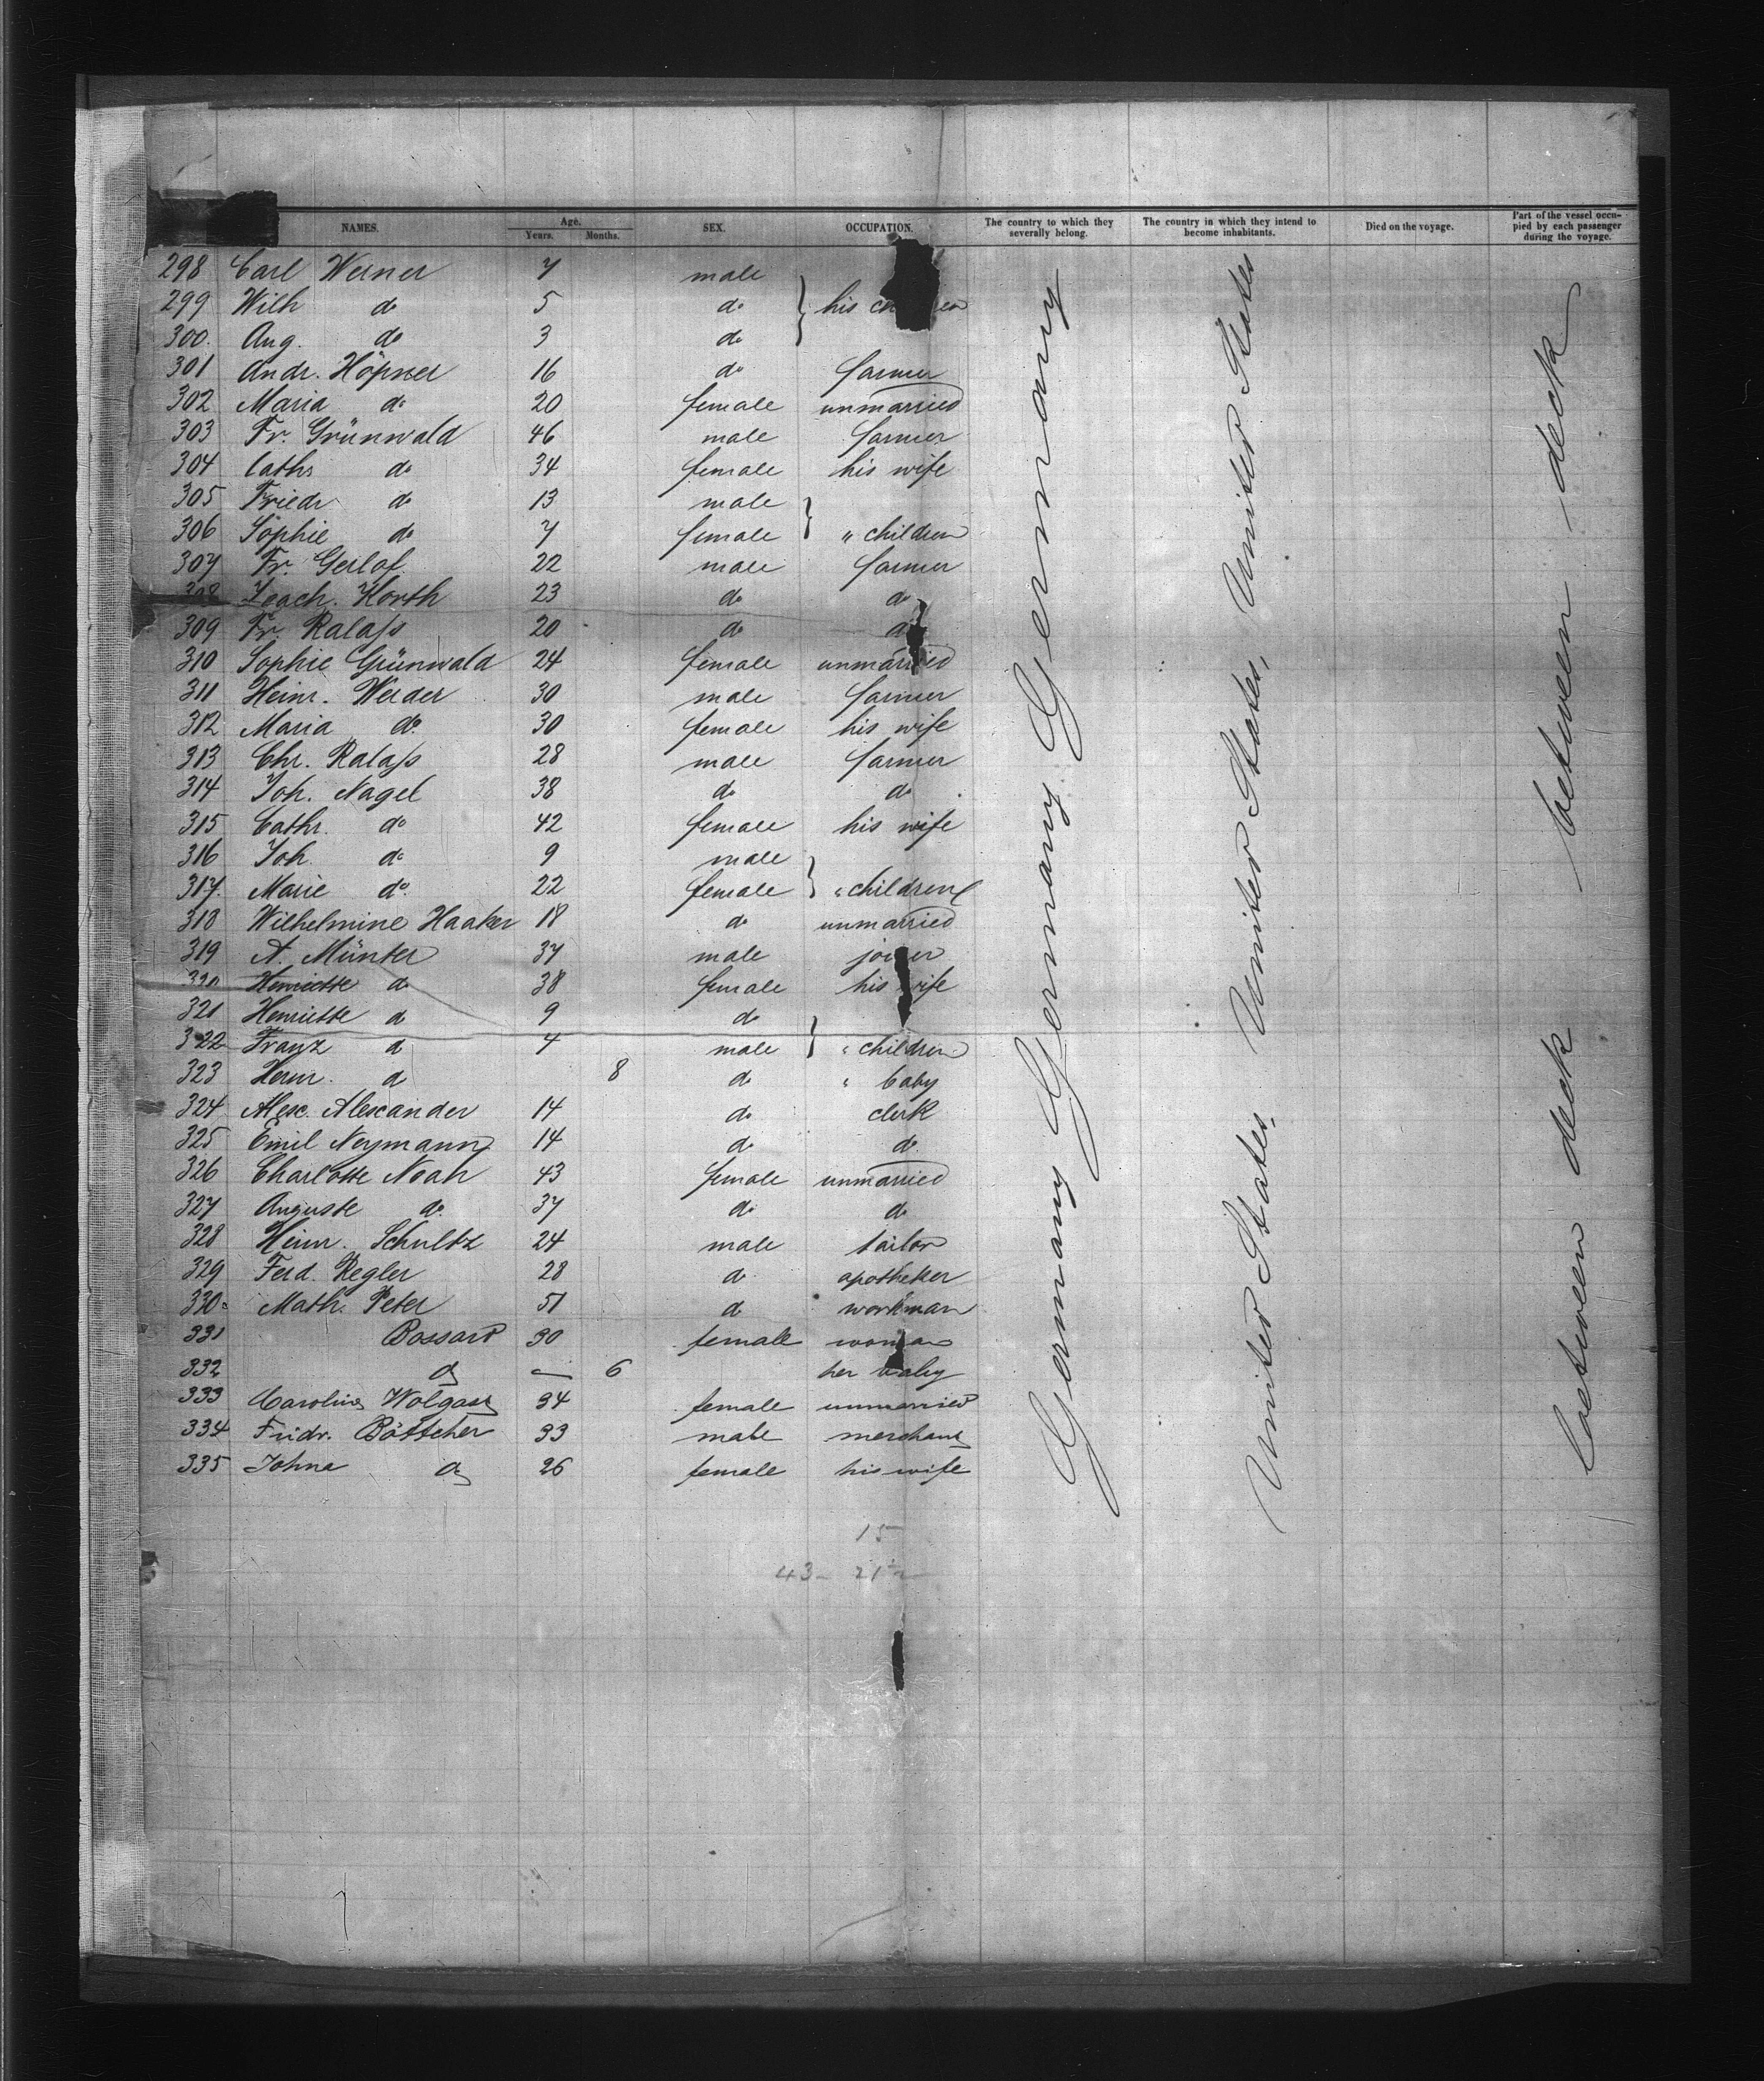 NAMES. Age. Years. Months. SEX. OCCUPATION. The country to which they severally belong. The country in which they intend to become inhabitants. Died on the voyage. Part of the vessel occupied by each passenger during the voyage.
298 Carl Werner 7 male
299 Wilh do 5 do } his
300. Aug. do 3 do
301 Andr. Höpner 16 do farmer
302 Maria do 20 female unmarried
303 Fr. Grünwald 46 male farmer
304 Cathr do 34 female his wife
305 Friedr do 13 male
306 Sophie do 7 female } " children
307 Fr. Gerlof 22 male farmer
308 Joach. Korth 23 do do
309 Fr. Ralaſs 20 do do
310 Sophie Grünwald 24 female unmarried
311 Heinr. Werder 30 male farmer
312 Maria do 30 female his wife
313 Chr. Ralaſs 28 male farmer
314 Joh. Nagel 38 do do
315 Cathr. do 42 female his wife
316 Joh. do 9 male
317. Marie do 22 female } " children
318 Wilhelmine Haaker 18 do unmarried
319 A. Münter 37 male joiner
320 Henriette do 38 female his wife
321 Henriette do 9 do
322 Franz do 4 male } " children
323 Herm. do 8 do " baby
324 Alex. Alexander 14 do clerk
325 Emil Neymann 14 do do
326 Charlotte Noah 43 female unmarried
327 Auguste do 37 do do
328 Heinr. Schultz 24 male tailor
329 Ferd. Regler 28 do apotheker
330 Math. Peter 51 do workman
331 Bossard 30 female woman
332 do — 6 her baby
333 Caroline Wolgast 34 female unmarried
334 Fridr. Böttcher 33 male merchant
335 Johna do 26 female his wife
Germany Germany Germany
United States, United States, United States
between deck between deck
15
43 - 21½